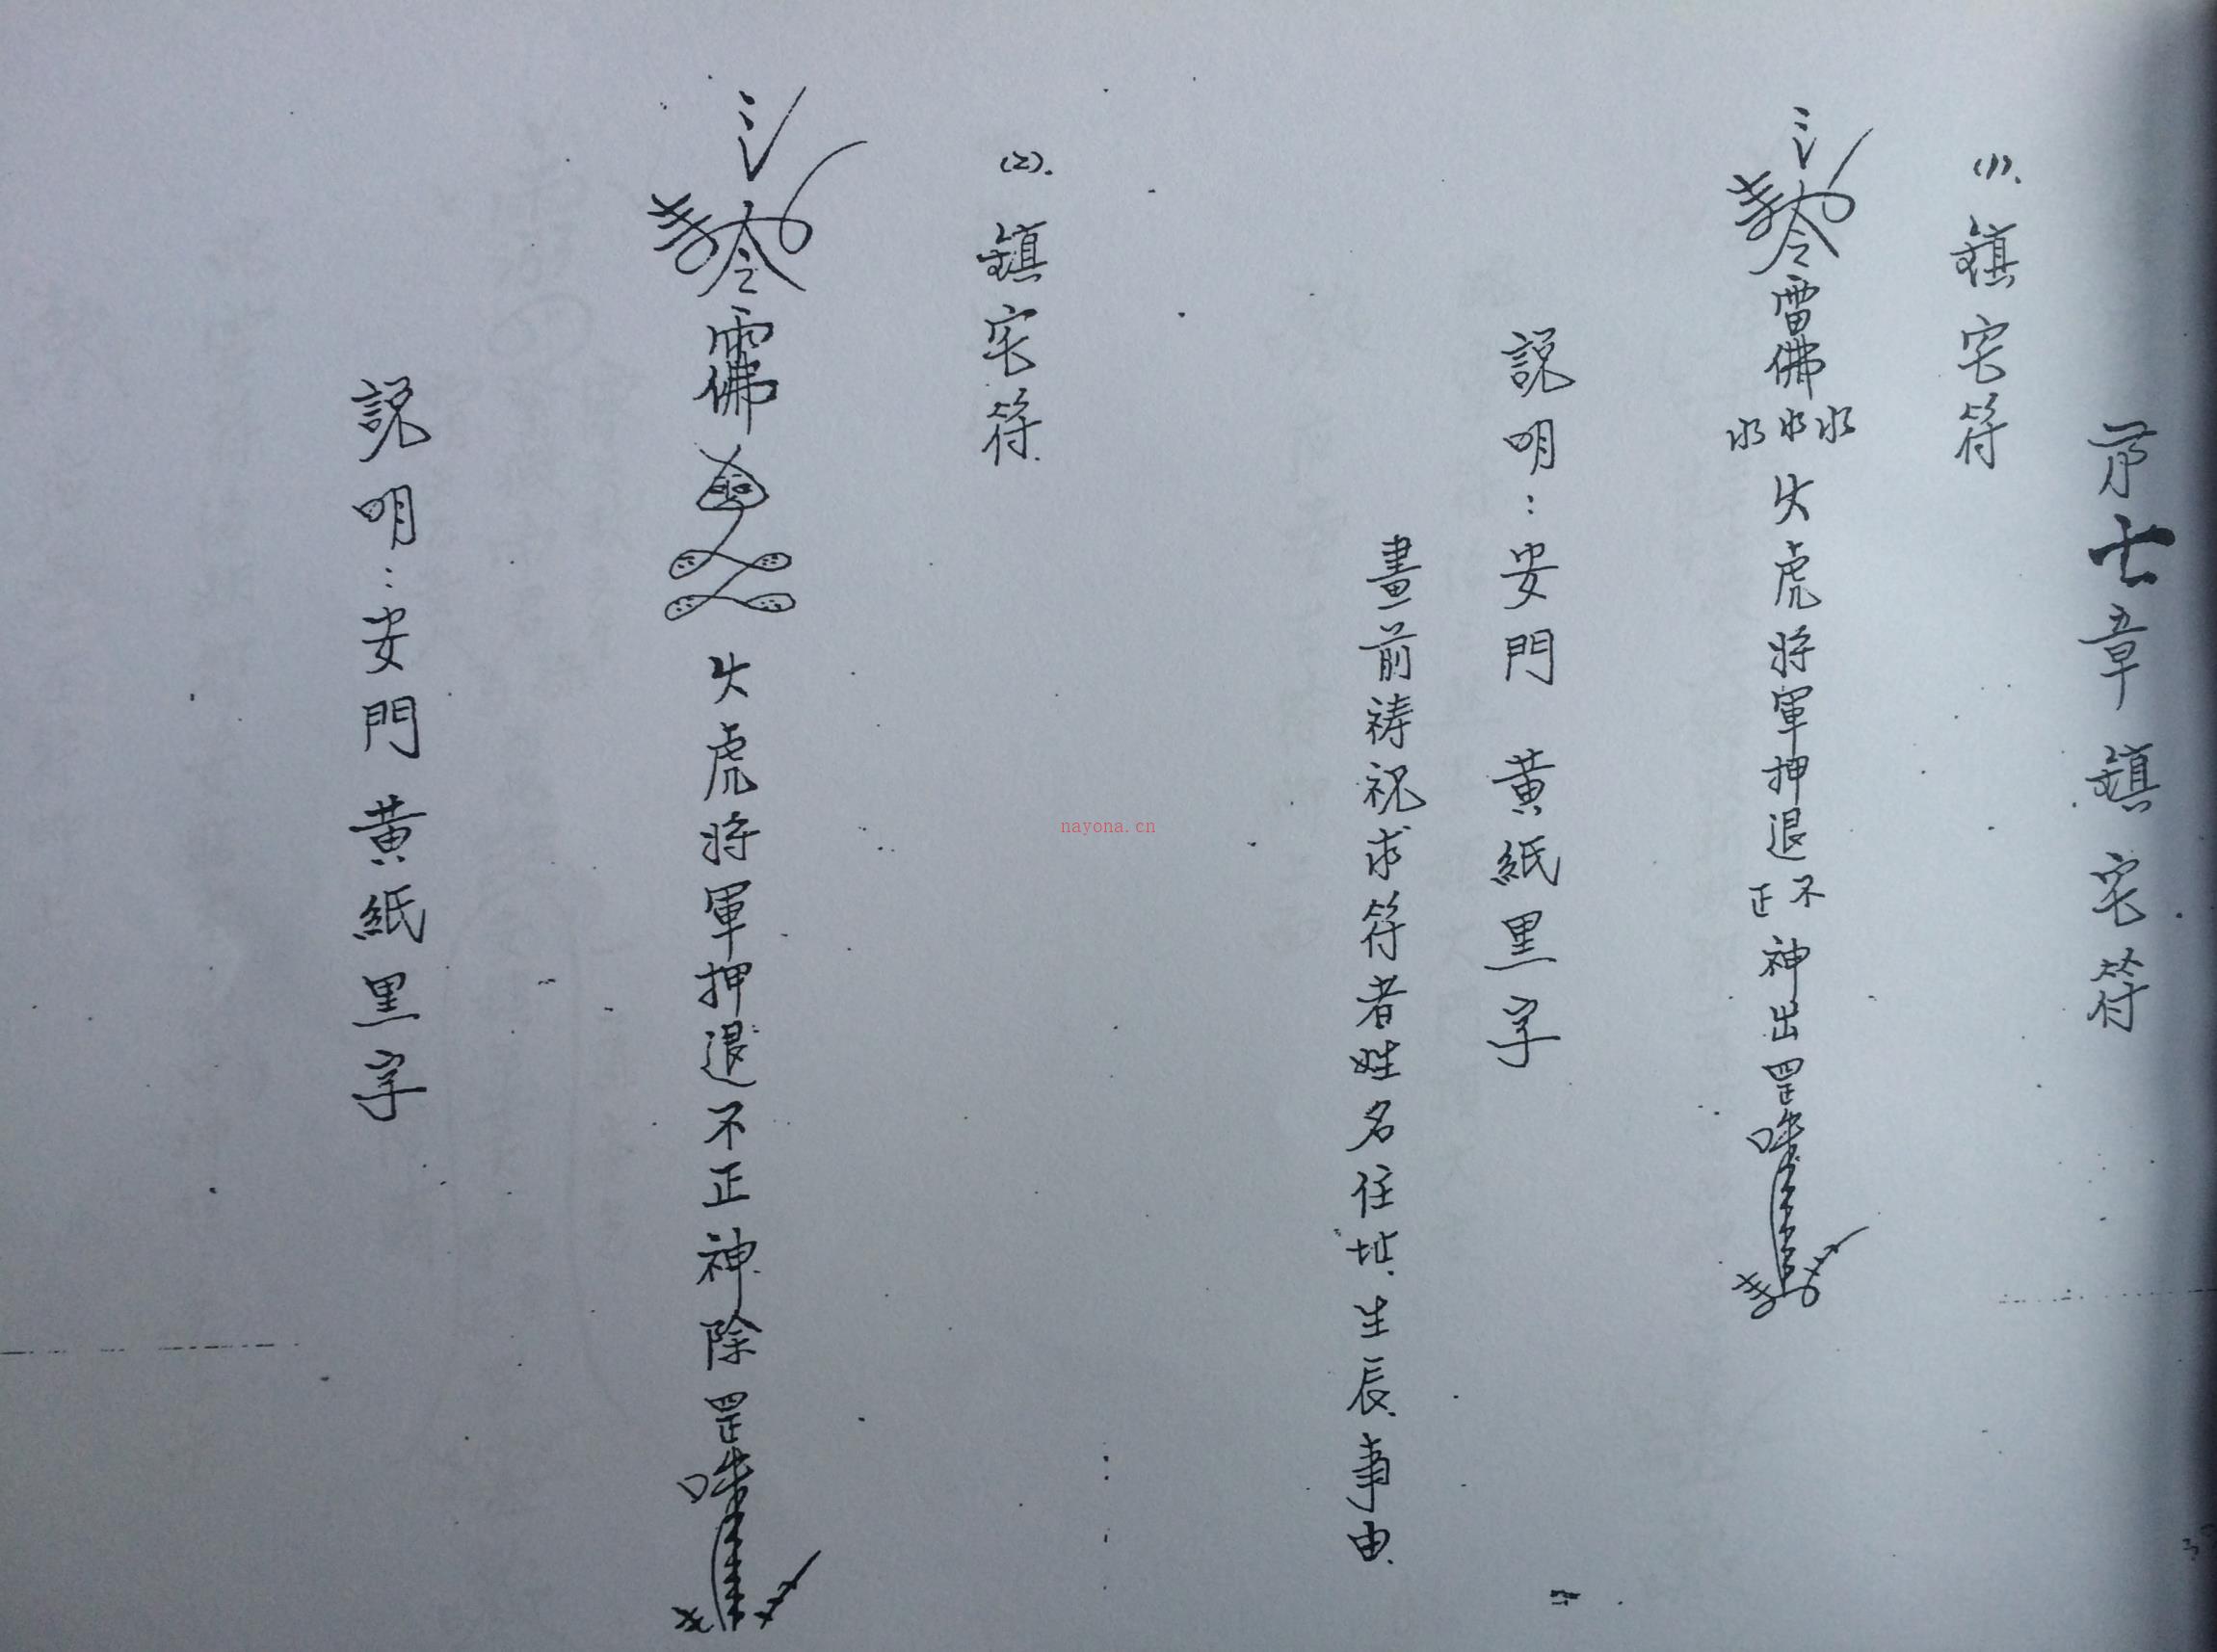 章 鎮宅符
(1).鎮宅符
令雷佛水水水火虎將軍押退不正神出罡
説明:安門 黃紙黑字
畫前禱祝求符者姓名住址.生辰.事由.
(2).鎮宅符.
令佛 火虎將軍押退不正神除罡
説明:安門黃紙黑字
nayona.cn